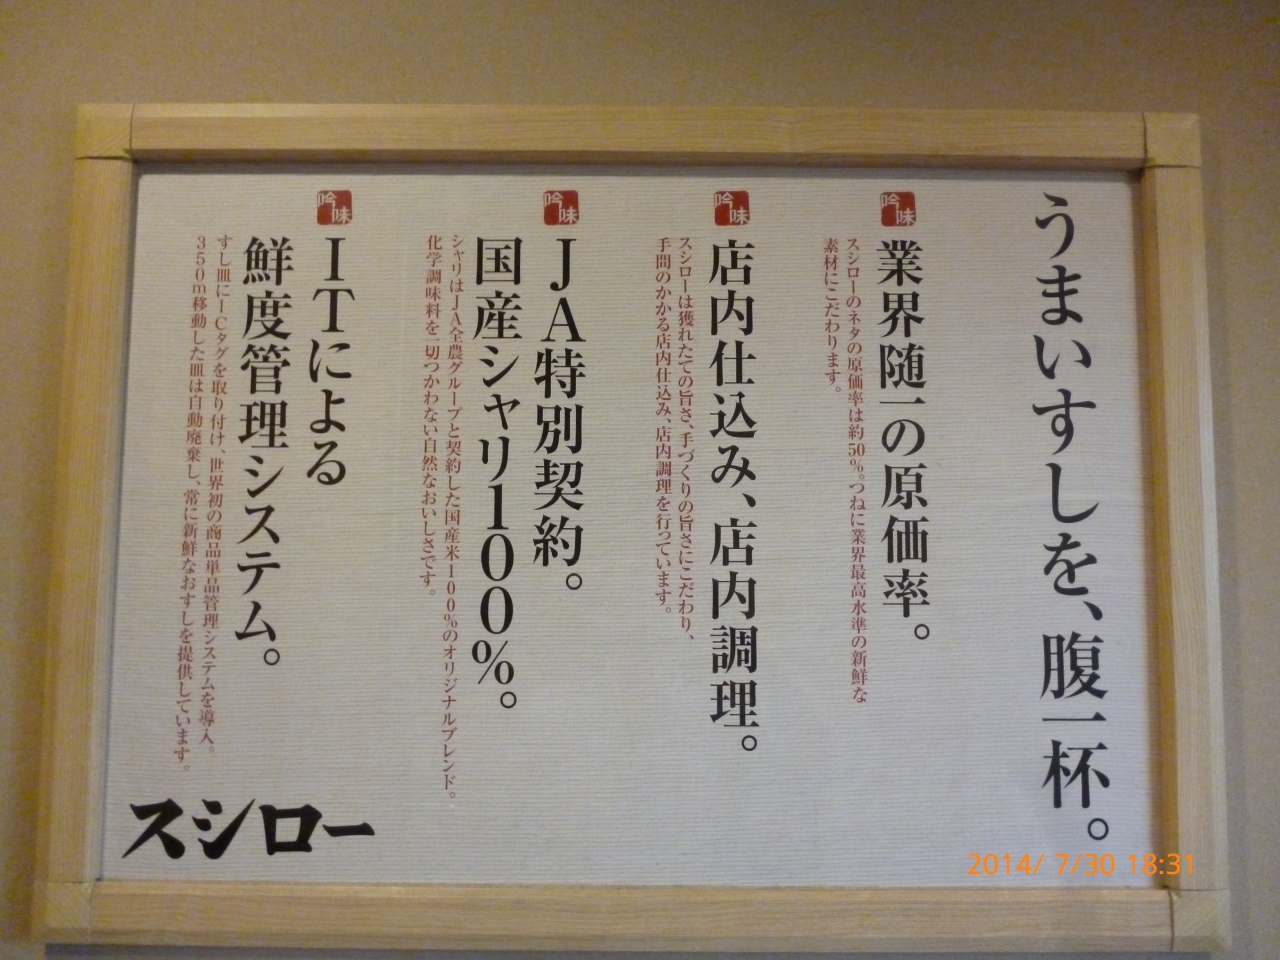 うまいすしを、腹一杯。
吟味
業界随一の原価率。
スシローのネタの原価率は約50%。つねに業界最高水準の新鮮な
素材にこだわります。
吟味
店内仕込み、店内調理。
スシローは獲れたての旨さ、手づくりの旨さにこだわり、
手間のかかる店内仕込み、店内調理を行っています。
吟味
JA特別契約。
国産シャリ100%。
シャリはJA全農グループと契約した国産米100%のオリジナルブレンド。
化学調味料を一切つかわない自然なおいしさです。
吟味
ITによる
鮮度管理システム。
すし皿にICタグを取り付け、世界初の商品単品管理システムを導入。
350m移動した皿は自動廃棄し、常に新鮮なおすしを提供しています。
スシロー
2014/ 7/30 18:31